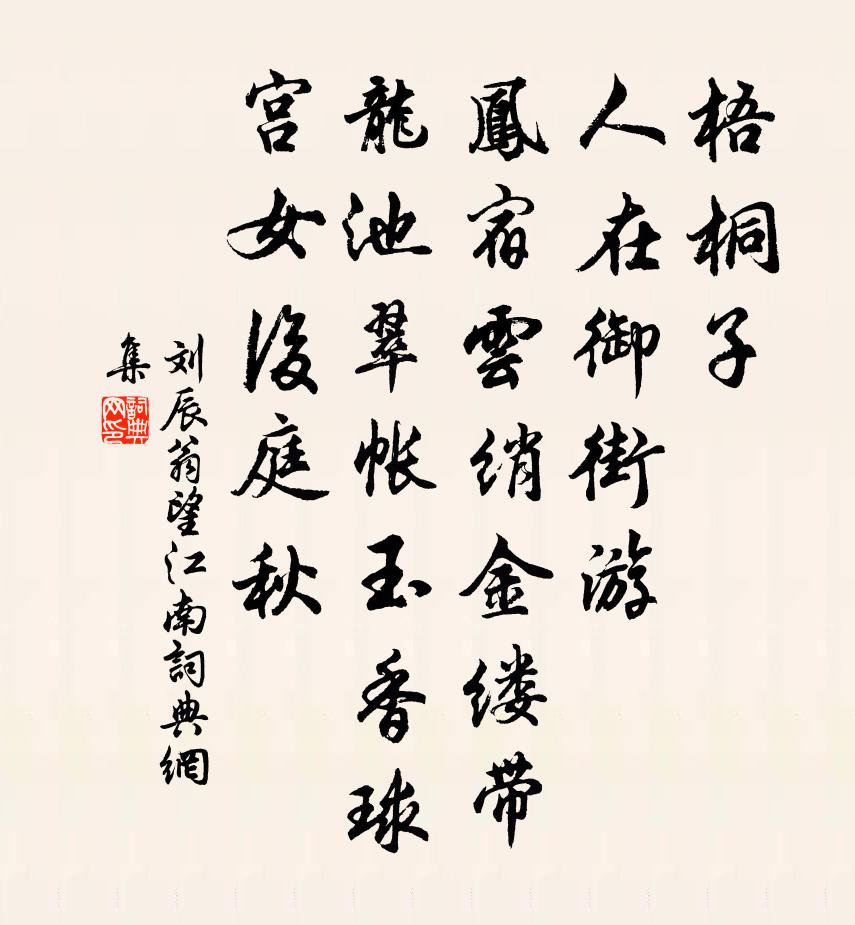 梧桐子
人在御街游
鳳宿雲綃金缕带
龍池翠帐玉香球
宫女後庭秋
刘辰翁望江南詞典網
集
詞典
网印